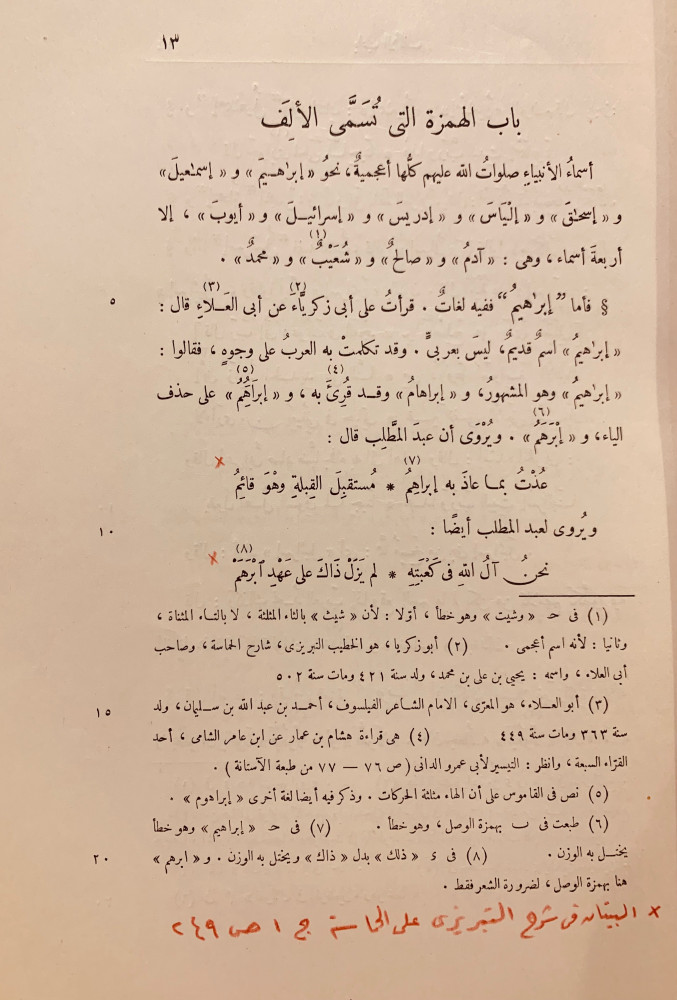 ١٣
باب الهمزة التى تُسَمَّى الألِفَ
أسماءُ الأنبياءِ صلواتُ الله عليهم كلُّها أعجميةٌ، نحوُ « إبراهـيمَ » و « إسمـٰعيلَ »
و « إسحـٰقَ » و « إلْيَاسَ » و « إدريسَ » و « إسرائيـلَ » و « أيوبَ » ، إلا
أربعةَ أسماء، وهى : « آدمُ » و « صالحٌ » و « شُعَيْبٌ (١) » و « محمدٌ » .
§ فأما ”إبرٰهيمُ“ ففيه لغاتٌ . قرأتُ على أبى زكريَّاءَ (٢) عن أبى العَـلاءِ (٣) قال : ٥
« إبرٰهيمُ » اسمٌ قديمٌ، ليسَ بعربىٍّ . وقد تكلمتْ به العربُ على وجوهٍ ، فقالوا :
« إبرٰهيمُ » وهو المشهورُ، و « إبراهامُ » وقـد قُرِئَ (٤) به ، و « إبرَاهِمُ (٥) » على حذف
الياء، و « إبْرَهَمُ (٦) » . ويُرْوَى أن عبدَ المطَّلِب قال :
عُذْتُ بمـا عاذَ به إبراهِمُ (٧) * مُستقبِلَ القِبلةِ وهْوَ قائِمُ ×
ويُروى لعبد المطلب أيضًا : ١٠
نحنُ آلُ اللهِ فى كَعْبَتِهِ (٨) * لم يَزَلْ ذَاكَ على عَهْدِ ٱبْرَهَمْ ×
(١) فى حـ « وشيت » وهو خطأ ، أوّلا : لأن « شيث » بالثاء المثلثة ، لا بالتـاء المثناة ،
وثانيا : لأنه اسم أعجمى . (٢) أبو زكريا، هو الخطيب التبريزى، شارح الحماسة، وصاحب
أبى العلاء ، واسمه : يحيى بن على بن محمد، ولد سنة ٤٢١ ومات سنة ٥٠٢
(٣) أبو العـلاء، هو المعرّى، الامام الشاعر الفيلسوف، أحمـد بن عبد الله بن سـليمان، ولد ١٥
سنة ٣٦٣ ومات سنة ٤٤٩ (٤) هى قراءة هشام بن عمار عن ابن عامر الشامى ، أحد
القرّاء السبعة ، وانظر : التيسير لأبى عمرو الدانى ( ص ٧٦ — ٧٧ من طبعة الآستانة ) .
(٥) نص فى القاموس على أن الهاء مثلثة الحركات . وذكر فيه أيضا لغة أخرى « إبراهوم » .
(٦) طبعت فى ب بهمزة الوصل، وهو خطأ . (٧) فى حـ « إبراهيم » وهو خطأ
يختـل به الوزن . (٨) فى ء « ذلك » بدل « ذاك » ويختل به الوزن . و « ابرهم » ٢٠
هنا بهمزة الوصل، لضرورة الشعر فقط .
× البيتان فى شرح التبريزى على الحماسة ج ١ ص ٢٤٩